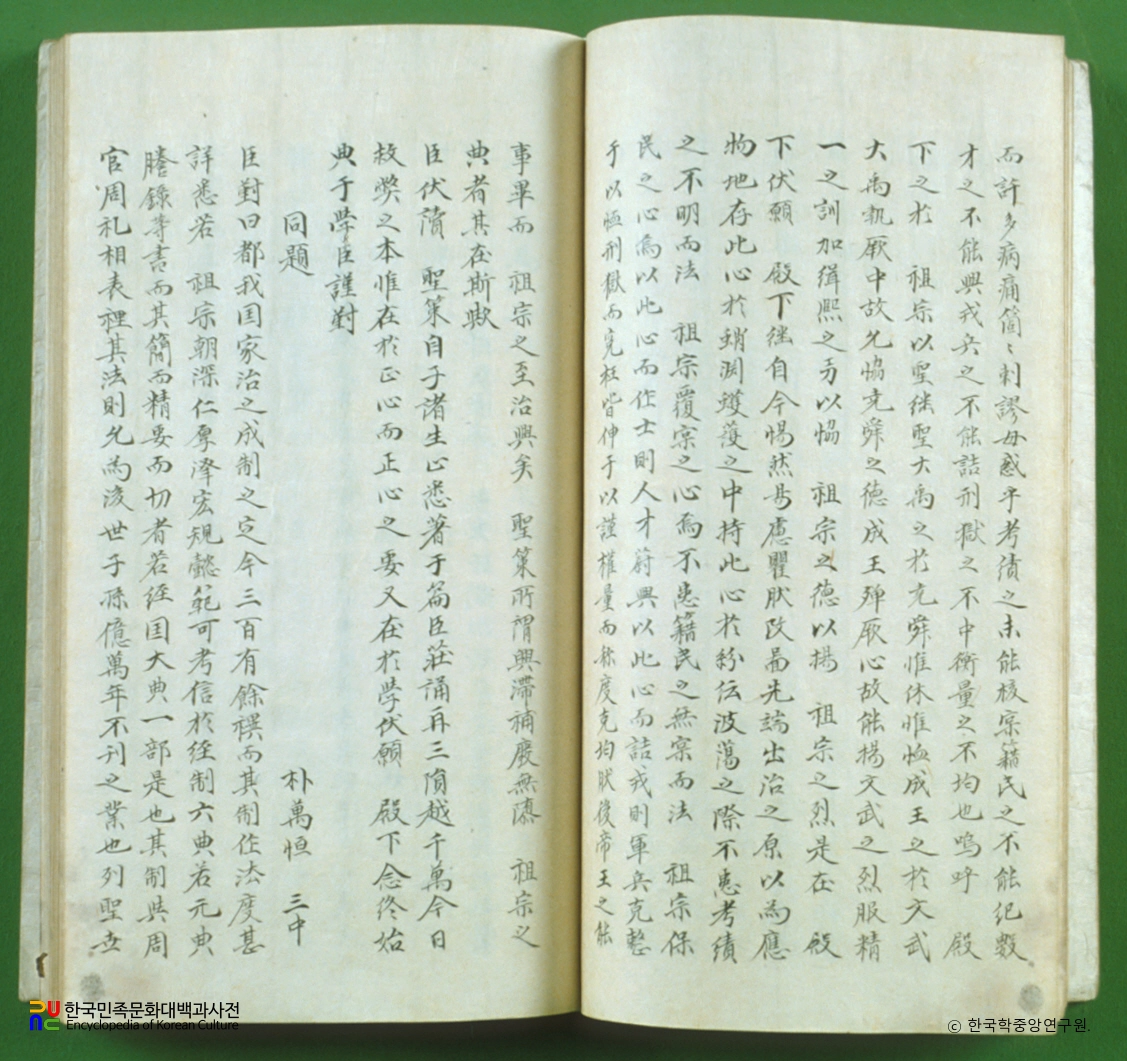 而許多病痛箇〻刺謬毋惑乎考績之未能核宲籍民之不能紀數
才之不能興戎兵之不能詰刑獄之不中衡量之不均也嗚呼 殿
下之於 祖宗以聖継聖大禹之於尭舜惟休惟恤成王之於文武
大禹執厥中故允恊尭舜之德成王殫厥心故能揚文武之烈服精
一之訓加緝熙之功以恊 祖宗之德以揚 祖宗之烈是在 殿
下伏願 殿下継自今惕然易慮瞿肰改啚先端出治之原以為應
物地存此心於蜎淵蠖濩之中持此心於紛伝波蕩之際不患考績
之不明而法 祖宗覆宲之心焉不患籍民之無宲而法 祖宗保
民之心焉以此心而作士則人才蔚興以此心而詰戎則軍兵克整
于以恤刑獄而寃枉皆伸于以謹權量而称度克均肰後帝王之能
事畢而 祖宗之至治興矣 聖策所謂興滯補廢無隳 祖宗之
典者其在斯歟
臣伏讀 聖策自子諸生止悉著于篇臣莊誦再三隕越千萬今日
救獘之本惟在於正心而正心之要又在於学伏願 殿下念終始
典于学臣謹對
同題 朴萬恒 三中
臣對曰都我国家治之成制之定今三百有餘禩而其制作法度甚
詳悉若 祖宗朝深仁厚澤宏規懿範可考信於経制六典若元典
謄錄等書而其簡而精要而切者若経国大典一部是也其制與周
官周礼相表裡其法則允為後世子孫億萬年不刊之業也列聖世
한국민족문화대백과사전
Encyclopedia of Korean Culture
© 한국학중앙연구원.